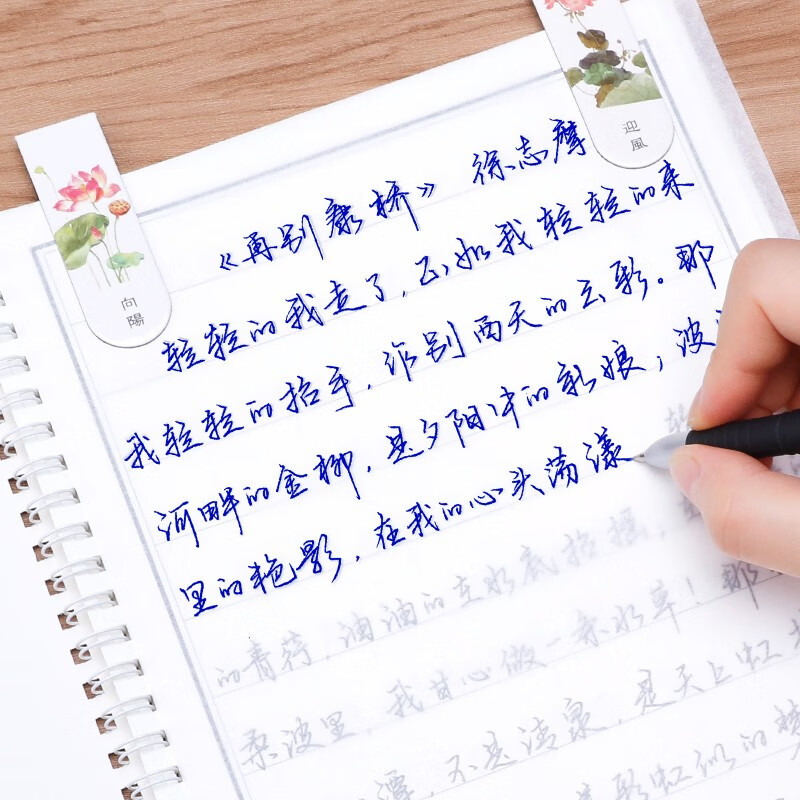 迎風
向陽
《再别康桥》 徐志摩
轻轻的我走了,正如我轻轻的来
我轻轻的招手,作别西天的云彩。那
河畔的金柳,是夕阳中的新娘;波
里的艳影,在我的心头荡漾
的青荇,油油的在水底招摇,在
柔波里,我甘心做一条水草!那
潭,不是清泉,是天上虹
彩虹似的梦